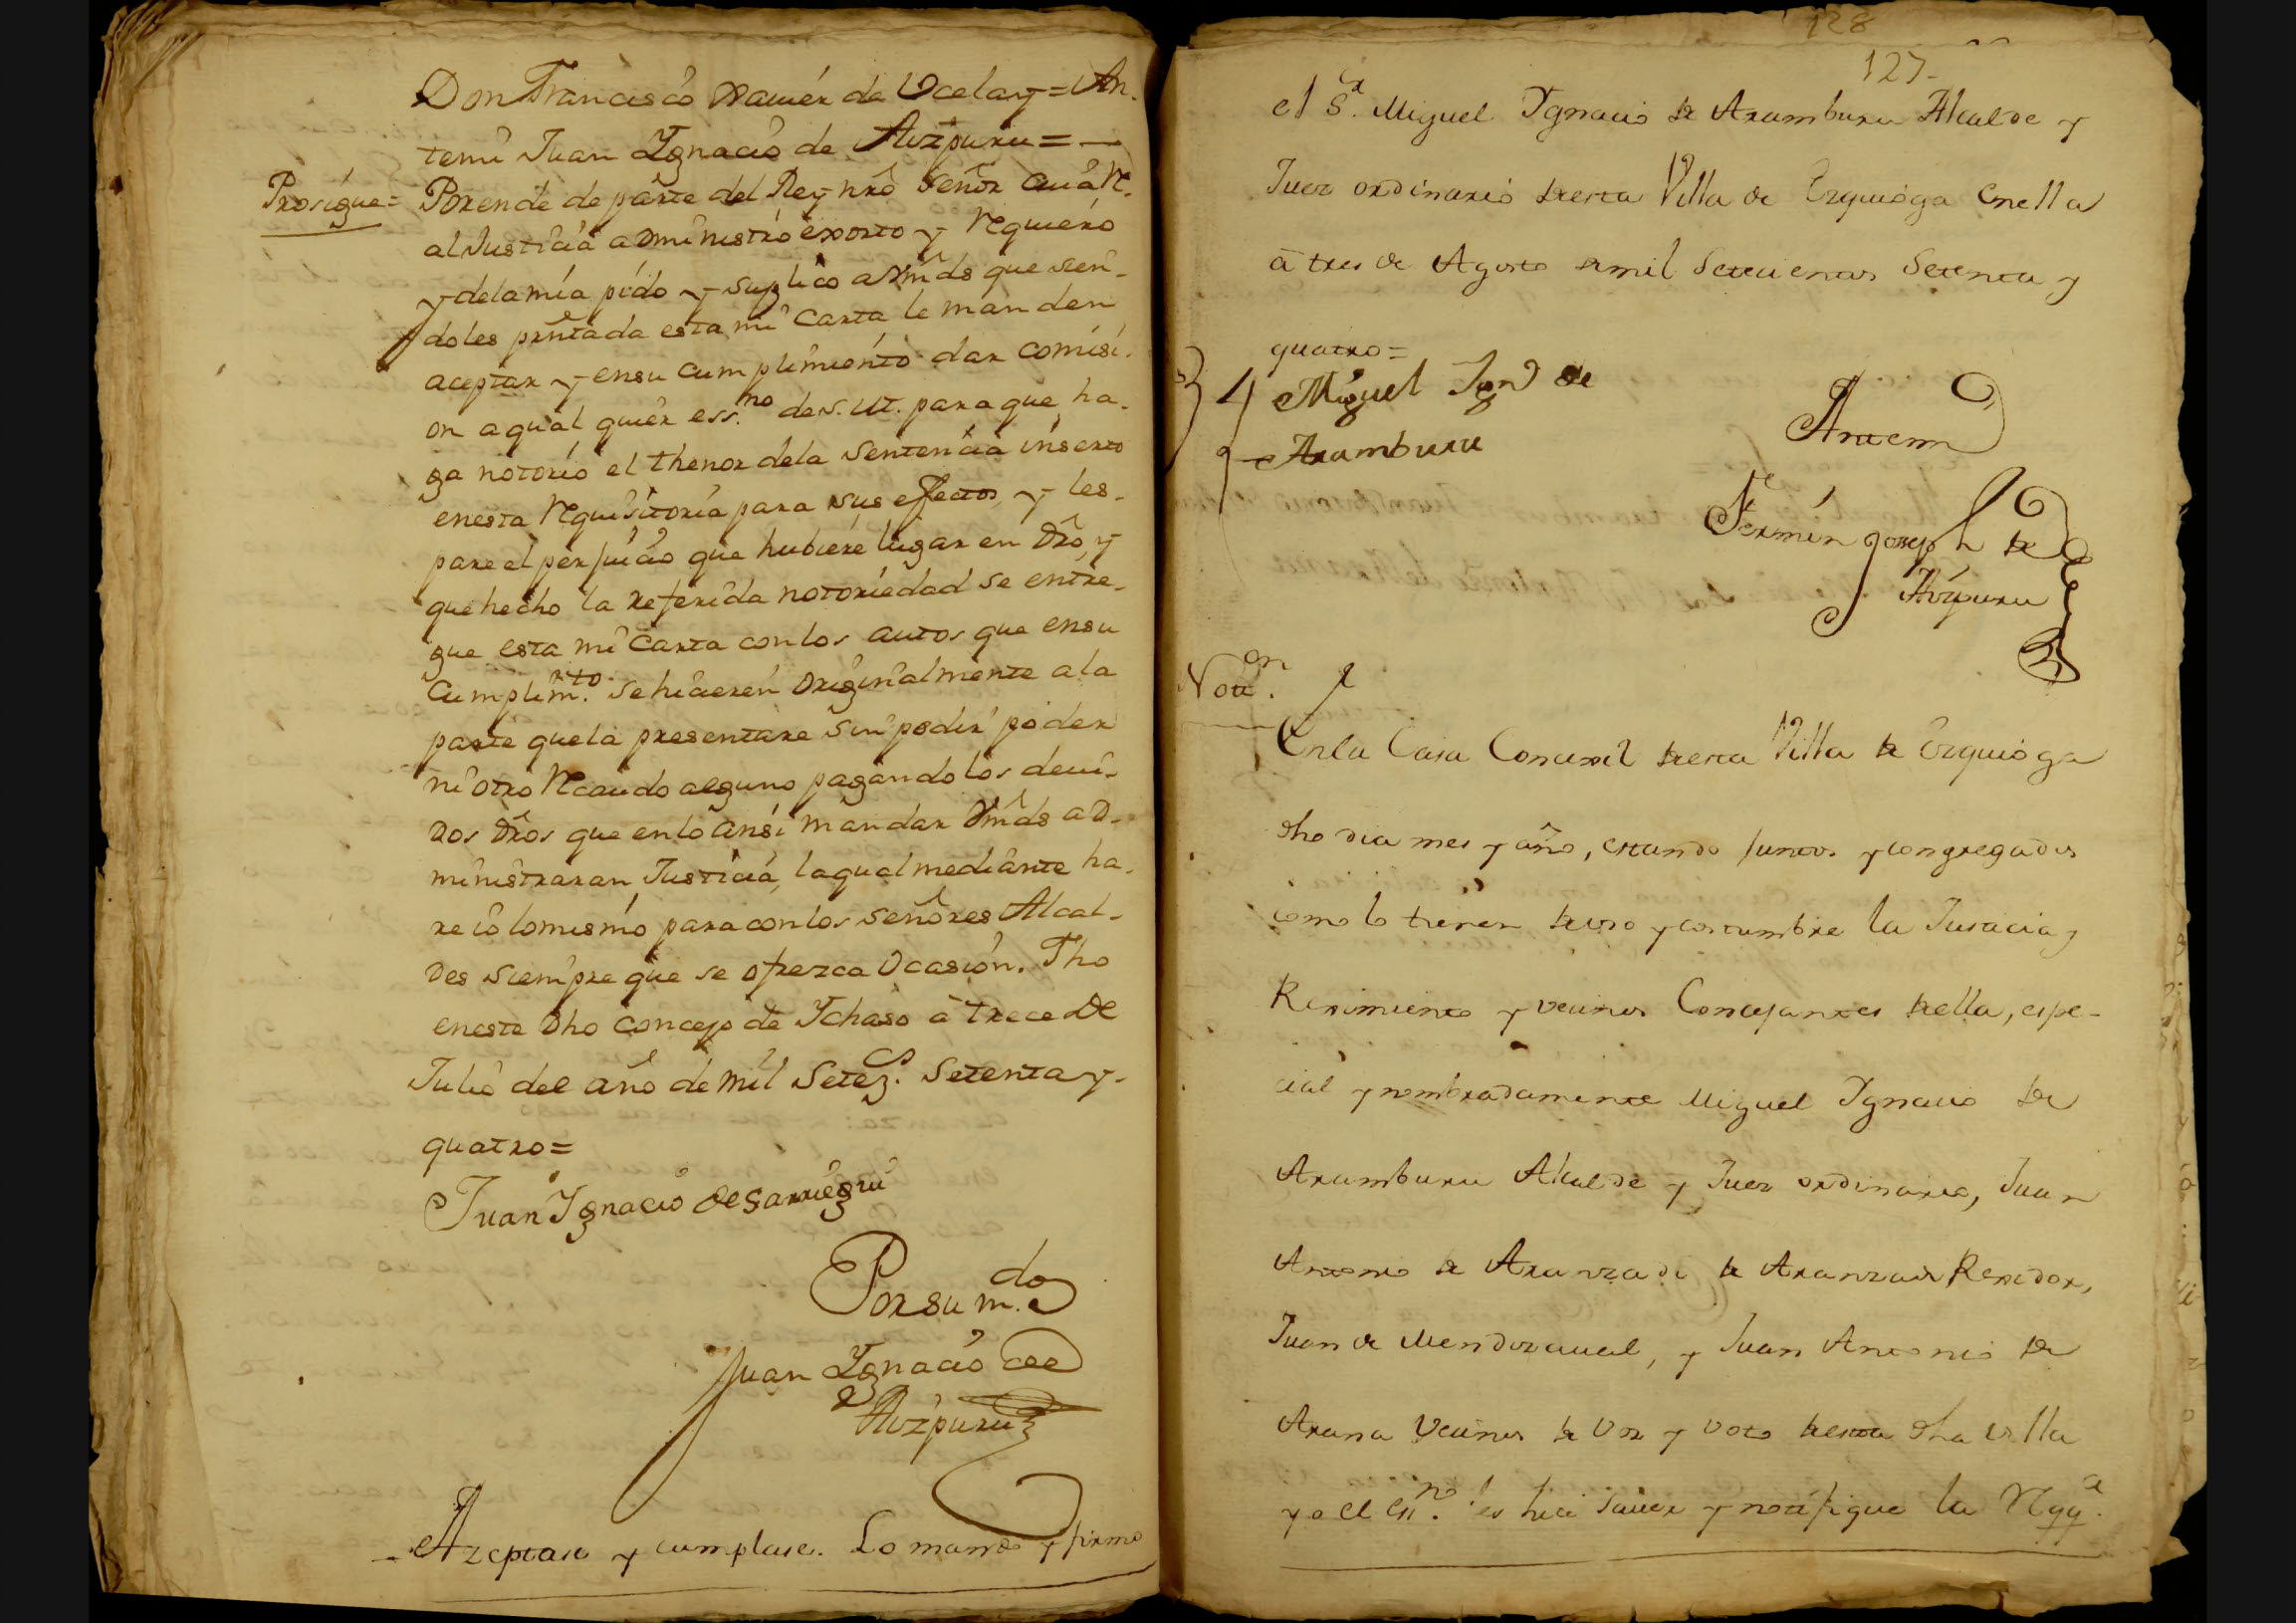 Don Francisco Xavier de Ocelay = An-
temi Juan Ygnacio de Aizpuru =
Prosigue = Porende de parte del Rey nrô Señor cuia R.
al Justicia administro exorto y requiero
y dela mia pido y suplico a Vmds que sien-
doles prntada esta mi Carta le manden
aceptar y ensu cumplimiento dar comisi-
on aqual quier ess.no de S. M. para que ha-
ga notorio el thenor dela Sentencia inserto
enesta requisitoria para sus efectos, y les-
pare el perjuicio que hubiere lugar en Dro, y
que hecho la referida notoriedad se entre-
gue esta mi Carta con los autos que ensu
Cumplim.to se hicieren Originalmente a la
parte quela presentare sin pedir poder
ni otro recaudo alguno pagando los devi-
dos Dros que enlo ansi mandar Vmds ad-
ministraran Justicia, laqual mediante ha-
re io lomismo para con los señores Alcal-
des siempre que se ofrezca Ocasion. Fho
eneste Dho Concejo de Ychaso â trece de
Julio del año de mil Setez.s Setenta y-
quatro =
Juan Ygnacio de Sarriegui
Porsu m.do
Juan Ygnacio de
Aizpuru
Azeptase y cumplase. Lo mando y firmo
128
127
el S.r Miguel Ygnacio de Aramburu Alcalde y
Juez ordinario desta Villa de Ezquioga enella
â tres de Agosto de mil Setecientos Setenta y
quatro =
Miguel Ign.o de
Aramburu
Antemi
Fermin Joseph de
Aizpuru
Not.on
En la Casa Concexil desta Villa de Ezquioga
dho dia mes y año, estando juntos y congregados
como lo tienen de uso y costumbre la Justicia y
Reximiento y vecinos Concejantes della, espe-
cial y nombradamente Miguel Ygnacio de
Aramburu Alcalde y Juez ordinario, Juan
Antonio de Aranzadi de Aranzadi Rexidor,
Juan de Mendizaual, y Juan Antonio de
Arana Vecinos de voz y voto desta dha villa
yo el Ess.no les hice sauer y notifique la Reqq.a